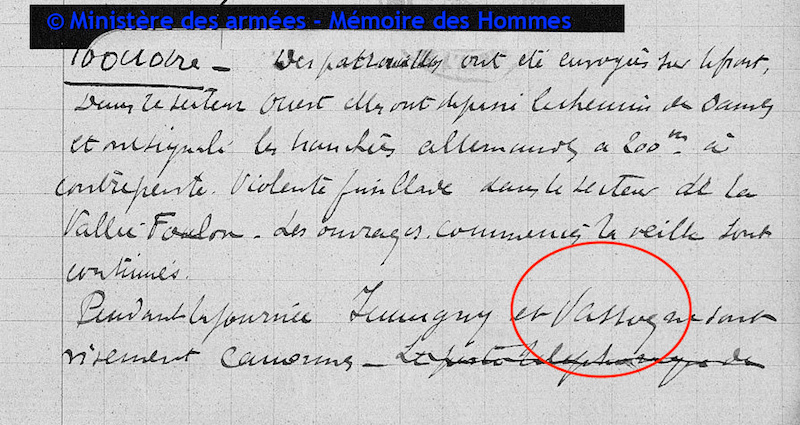 © Ministère des armées - Mémoire des Hommes
10 Octobre - Des patrouilles ont été envoyées sur le front,
Dans le secteur Ouest elles ont dépassé le chemin des Dames
et ont signalé les tranchées allemandes à 200m à
contrepente. Violente fusillade dans le secteur de la
Vallée Foulon. Les ouvrages commencés la veille sont
continués.
Pendant la journée Jumigny et Vassogne sont
vivement canonnés - Le poste téléphonique de